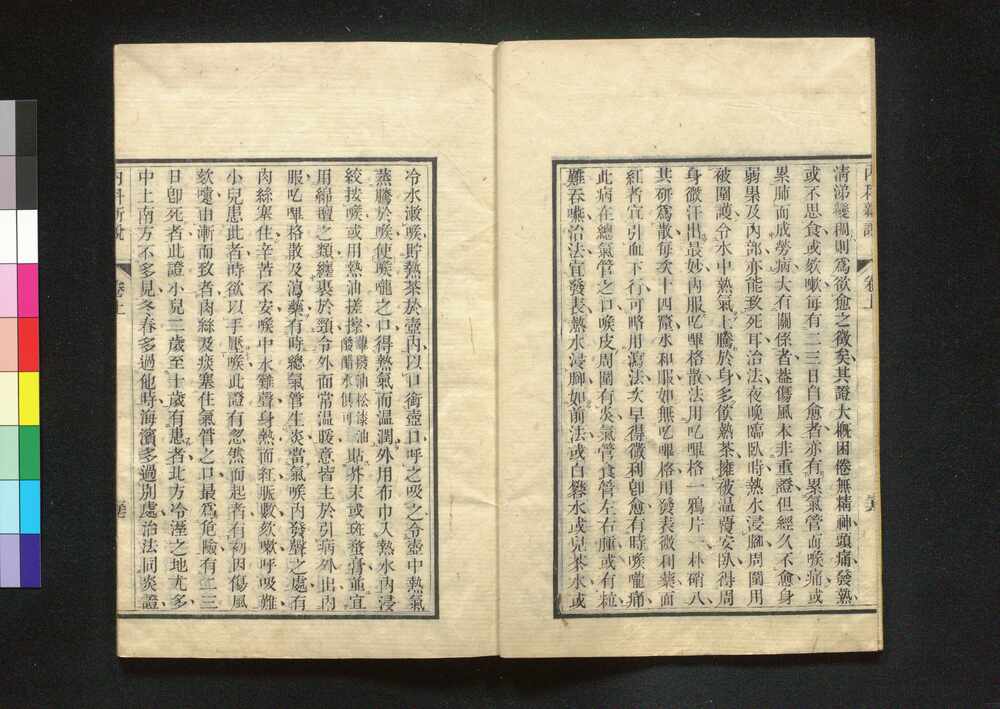 清涕變稠則爲欲愈之徵矣其證大概困倦無精神頭痛發熱
或不思食或欬嗽每有二三日自愈者亦有累氣管而喉痛或
累肺而成勞病大有關係者蓋傷風本非重證但經久不愈身
弱累及內部亦能致死耳治法夜晚臨臥時熱水浸腳周圍用
被圍護令水中熱氣上騰於身多飲熱茶擁被溫覆安臥得周
身微汗出最妙內服吃嗶格散法用吃嗶格一鴉片一朴硝八
共研爲散每次十四釐水和服如無吃嗶格用發表微利藥面
紅者宜引血下行可略用瀉法次早得微利卽愈有時喉嚨痛
此病在總氣管之口喉皮周圍有炎氣管食管左右腫或有粒
難吞嚥治法宜發表熱水浸腳如前法或白礬水或兒茶水或
內科新說
卷上
冷水漱喉貯熱茶於壺內以口銜壺口呼之吸之令壺中熱氣
蒸騰於喉使喉嚨之口得熱氣而溫潤外用布巾入熱水內浸
絞按喉或用熱油搓擦 貼芥末或斑蝥膏並宜
用綿氊之類纏裹於頸令外面常溫暖意皆主於引病外出內
服吃嗶格散及瀉藥有時總氣管生炎當氣喉內發聲之處有
肉絲塞住辛苦不安喉中水雞聲身熱面紅脈數欬嗽呼吸難
小兒患此者時欲以手壓喉此證有忽然而起者有初因傷風
欬嚏由漸而致者肉絲及痰塞住氣管之口最爲危險有二三
日卽死者此證小兒二歲至十歲有患者北方冷溼之地尤多
中土南方不多見冬春多過他時海濱多過別處治法同炎證
內科新說
卷上